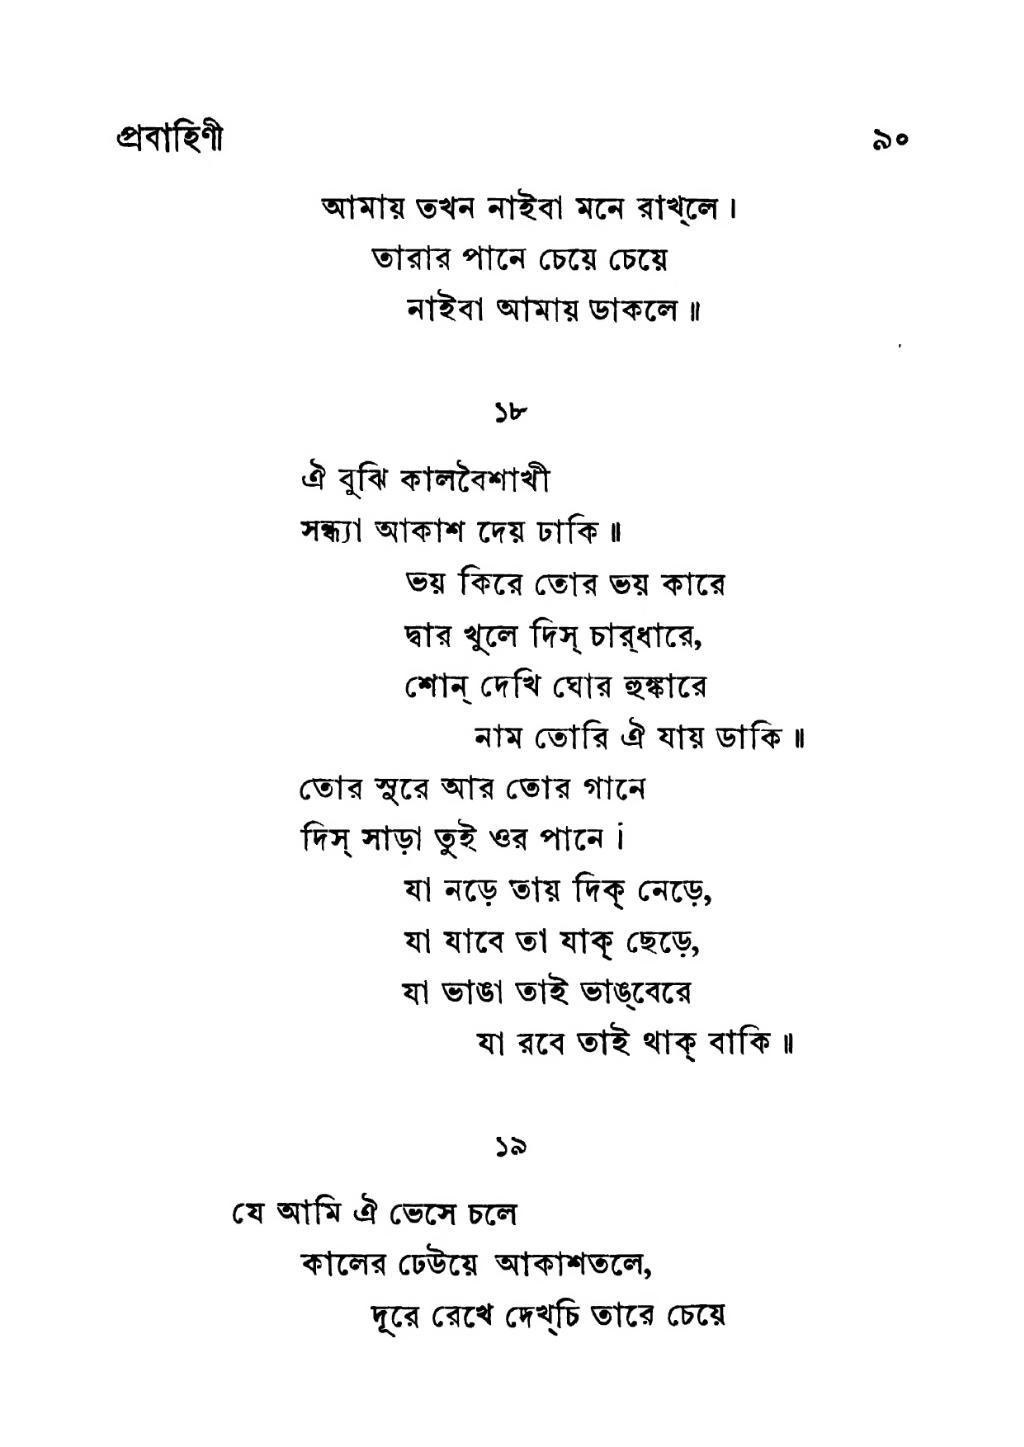 প্রবাহিণী ৯০
আমায় তখন নাইবা মনে রাখ্‌লে।
তারার পানে চেয়ে চেয়ে
নাইবা আমায় ডাকলে॥
১৮
ঐ বুঝি কালবৈশাখী
সন্ধ্যা আকাশ দেয় ঢাকি॥
ভয় কিরে তোর ভয় কারে
দ্বার খুলে দিস্ চার্‌ধারে,
শোন্ দেখি ঘোর হুঙ্কারে
নাম তোরি ঐ যায় ডাকি॥
তোর সুরে আর তোর গানে
দিস্ সাড়া তুই ওর পানে।
যা নড়ে তায় দিক্ নেড়ে,
যা যাবে তা যাক্ ছেড়ে,
যা ভাঙা তাই ভাঙ্‌বেরে
যা রবে তাই থাক্ বাকি॥
১৯
যে আমি ঐ ভেসে চলে
কালের ঢেউয়ে আকাশতলে,
দূরে রেখে দেখ্‌চি তারে চেয়ে